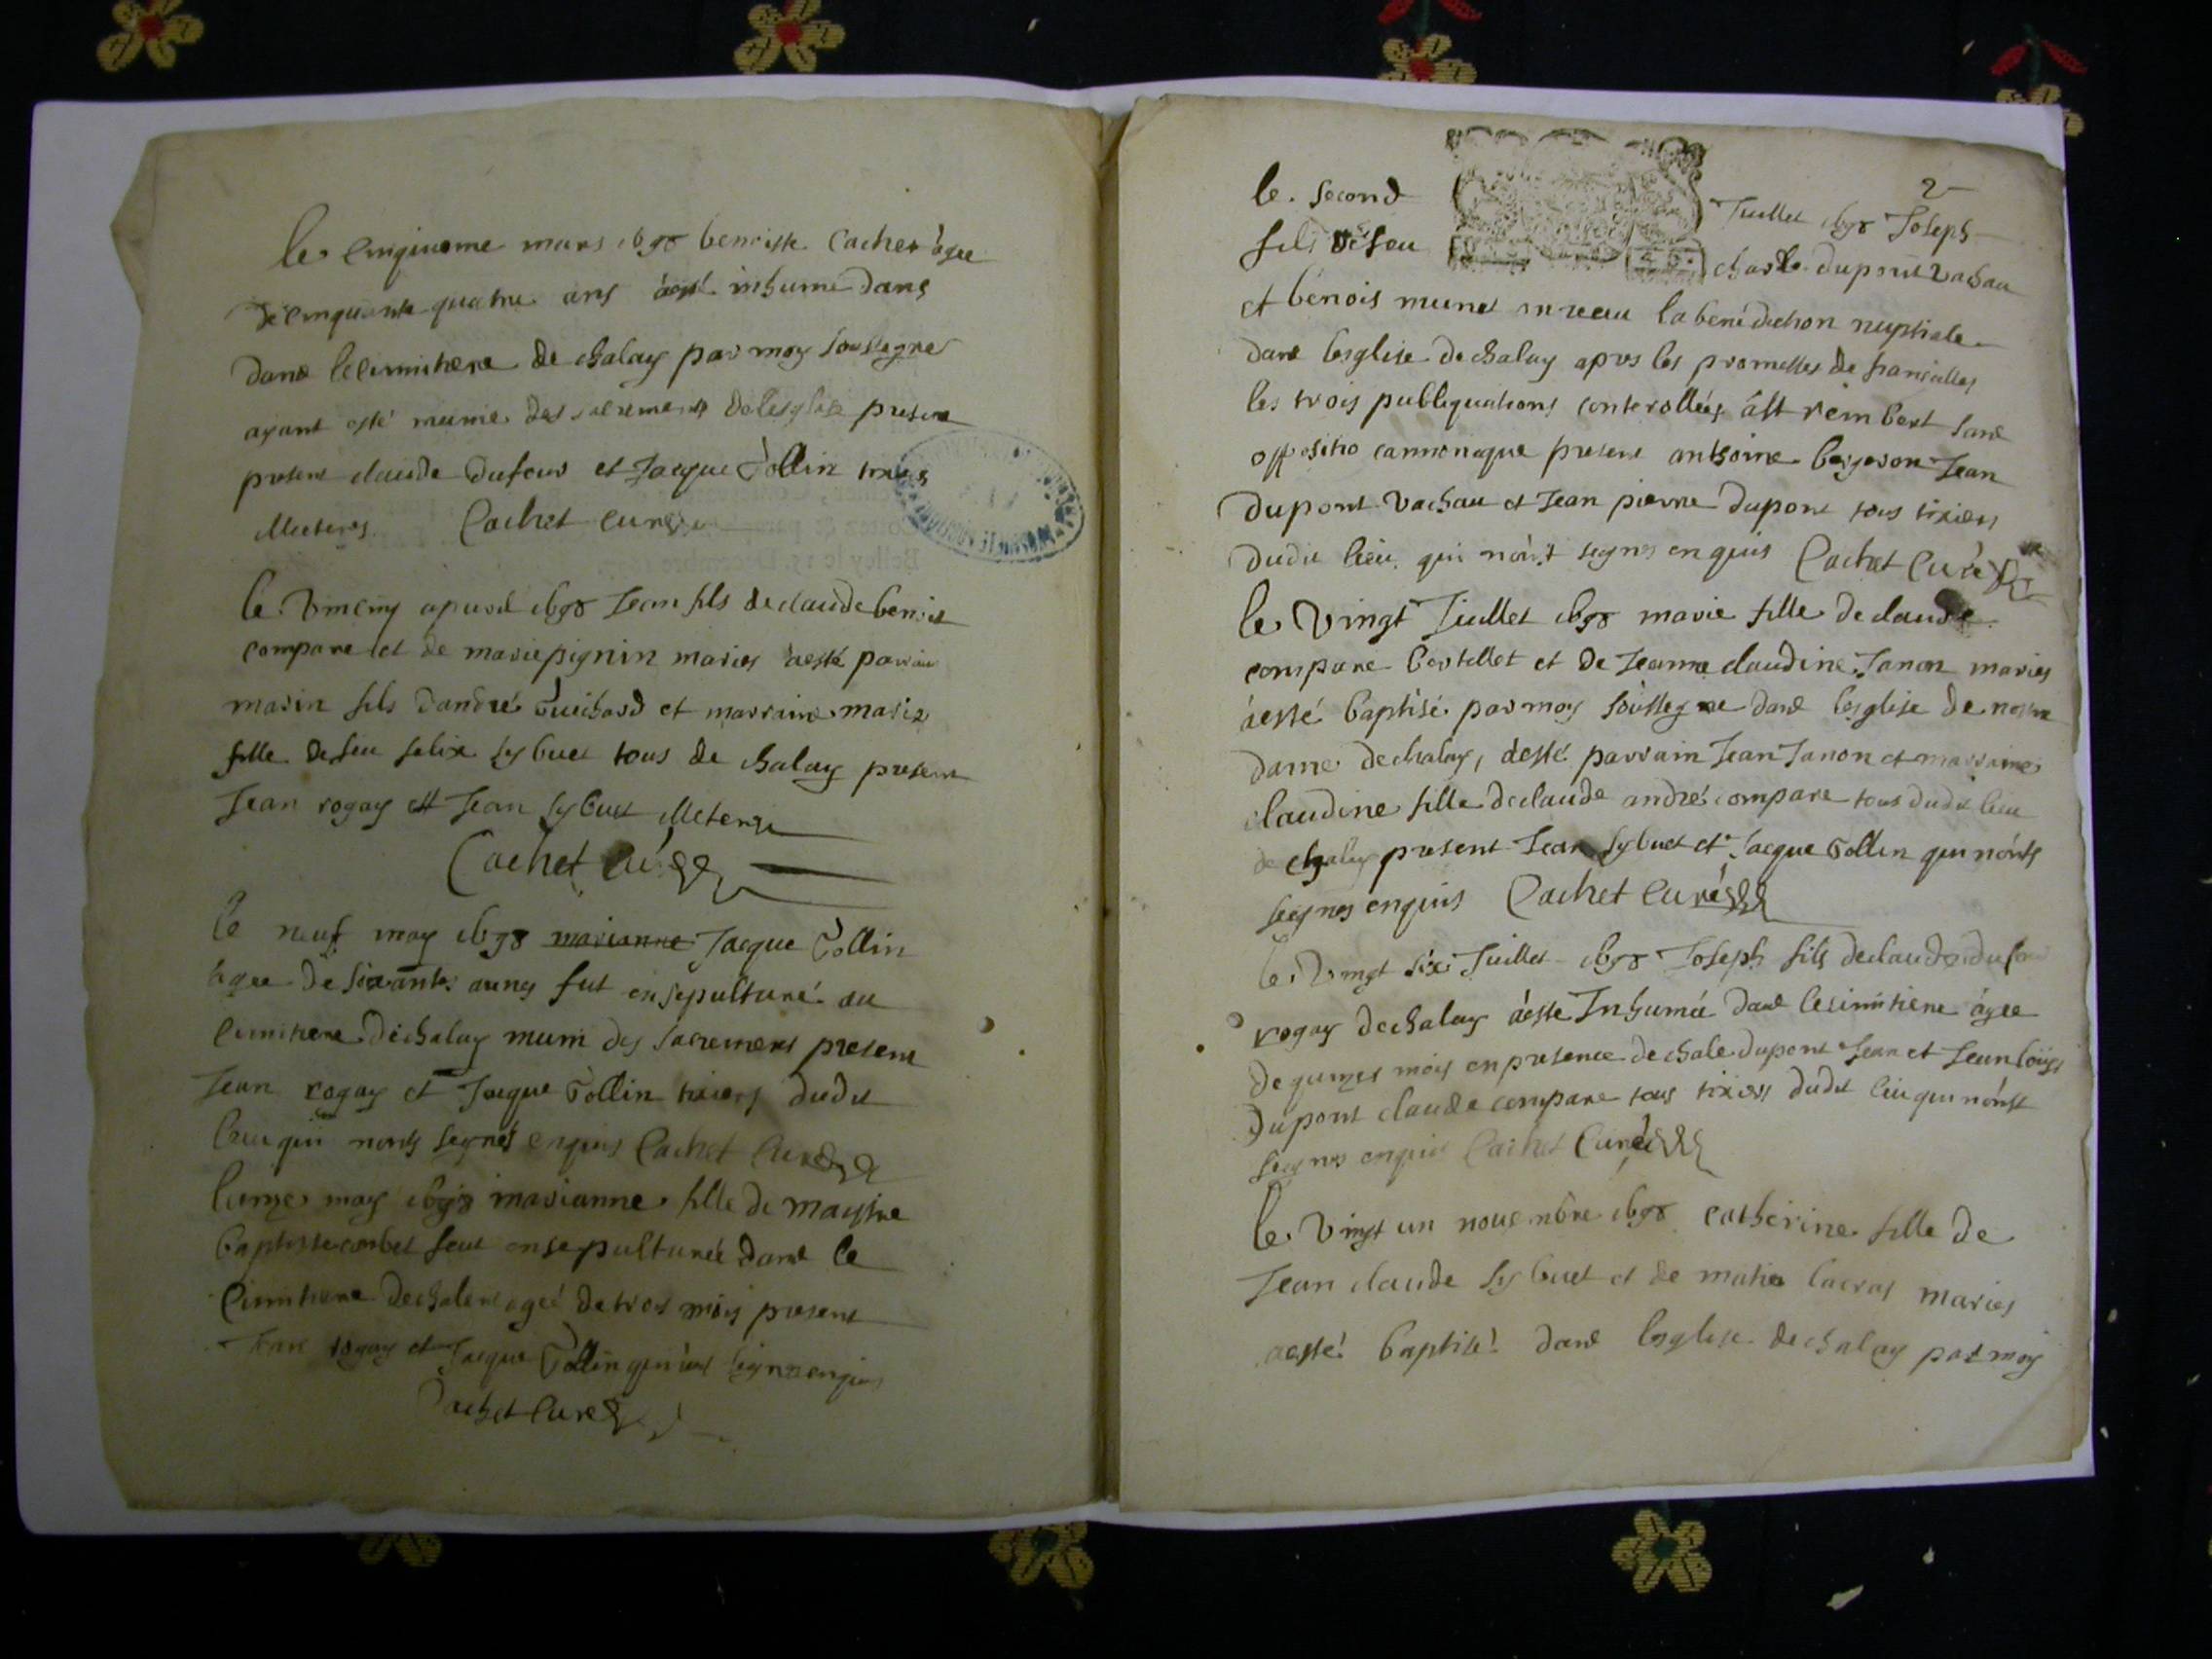 le cinquieme mars 1698 benoiste Cachet agee
de cinquante quatre ans a esté inhume dans
dans le cimitiere de chalay par moy soussegne
ayant esté munie des sacrements de lesglise present
present claude dufour et Jacque Tollin tixiers
illiteres Cachet curé
le vincinq apvril 1698 Jean fils de claude benoit
compare et de marie pignin maries a esté parrain
marin fils dandré Guichard et marraine marie
fille de feu felix sybuet tous de chalay present
Jean rogay et Jean sybuet illeteres
Cachet curé
le neuf may 1698 marianne Jacque Tollin
agee de soixante annes fut ensepulturé au
cimitiere de chalay muni des sacrements present
Jean rogay et Jacque Tollin tixiers dudit
lieu qui nonts segnés enquis Cachet Curé
lunze may 1698 marianne fille de maystre
baptiste combet feut ensepulturée dans le
cimitiere de chaley agée de trois mois present
Jean rogay et Jacque Tollin qui segnes enquis
Cachet Curé
Belley le 15. Decembre
2
le second Juillet 1698 Joseph
fils de feu charle dupont vachau
et benois munet on receu la benediction nuptiale
dans lesglise de chalay apres les promesses de fiancialles
les trois publiquations conterollées a st rembert sans
oppositio cannonique present anthoine bergeron Jean
dupont vachau et Jean pierre dupont tous tixiers
dudit lieu qui nont segnes enquis Cachet Curé
le vingt Juillet 1698 marie fille de claude
compare bertellet et de Jeanne claudine Janon maries
a esté baptisé par moy soussegne dans lesglise de nostre
dame de chalay, a esté parrain Jean Janon et marraine
claudine fille de claude andré compare tous dudit lieu
de chalay present Jean sybuet et Jacque Tollin qui nonts
segnes enquis Cachet Curé
le vingt six Juillet 1698 Joseph fils de claude dufour
rogay de chalay a este Inhumée dans le cimitiere agee
de quinzes mois en presence de chale dupont Jean et Jean louys
dupont claude compare tous tixiers dudit lieu qui nonst
segnes enquis Cachet Curé
le vingt un novembre 1698 catherine fille de
Jean claude sybuet et de matie lacras maries
a esté baptisé dans lesglise de chalay par moy